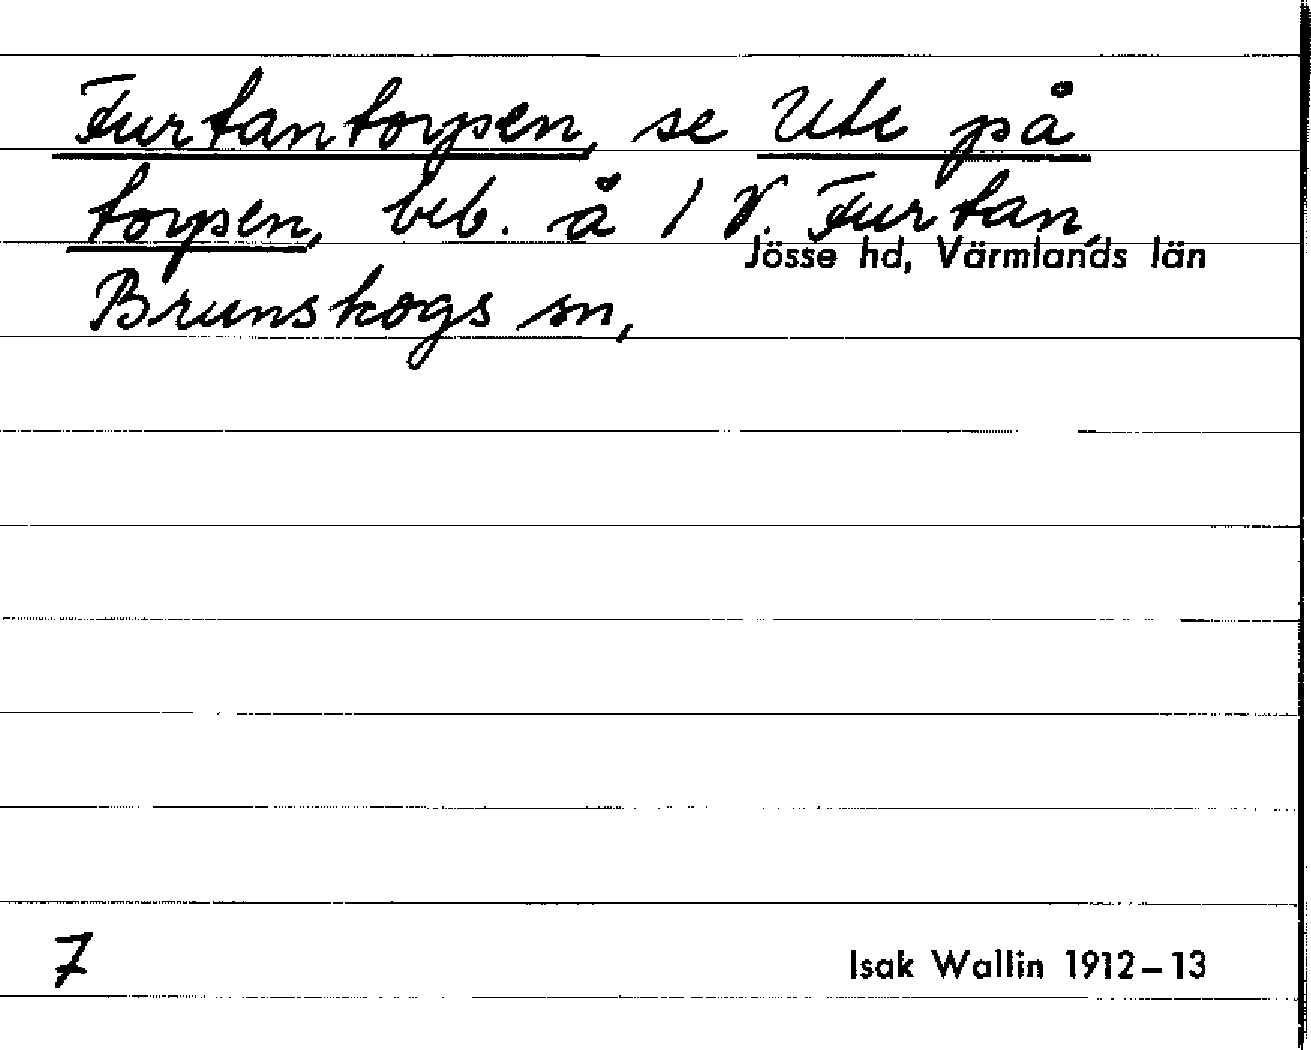 Furtantorpen, se Ute på
torpen, beb. å 1 V. Furtan,
Jösse hd, Värmlands län
Brunskogs sn,
7
Isak Wallin 1912–13